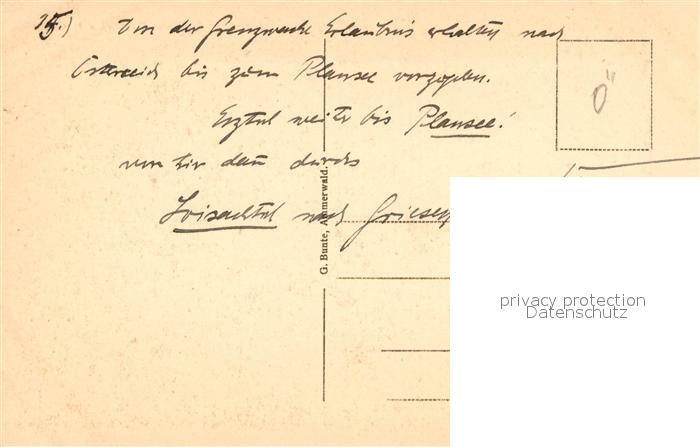 Von der Grenzwache Erlaubnis erhalten nach
Österreich bis zum Plansee vorzugehen.
weiter bis Plansee!
von hier dann durchs
Loisachtal nach Griesen
G. Bunte, Ammerwald.
Ö
privacy protection
Datenschutz